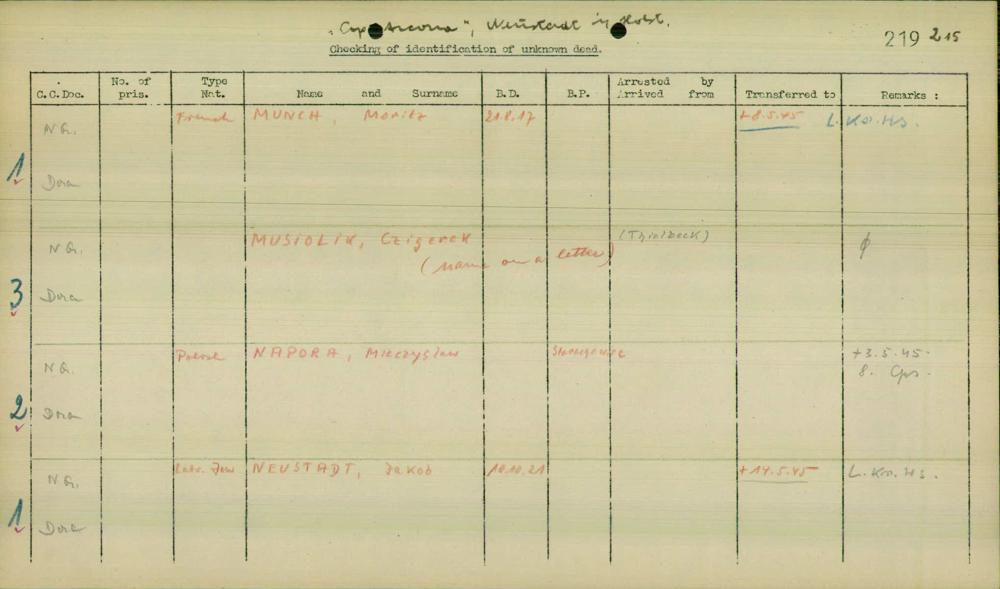 "Cap Arcona", Neustadt in Holst.
219 215
Checking of identification of unknown dead.
C.C.Doc. No. of pris. Type Nat. Name and Surname B.D. B.P. Arrested by Arrived from Transferred to Remarks :
N G. French MUNCH, Moritz 21.8.17 +8.5.45 L. Kr. Hs.
1 Dora
N G. MUSIOLIK, Czigerek (Thielbeck) ϕ
(name on a letter)
3 Dora
N G. Polish NAPORA, Mieczyslaw +3.5.45
8. Cps.
2 Dora
N G. Latv. Jew NEUSTADT, Jakob 10.10.21 +14.5.45 L. Kr. Hs.
1 Dora